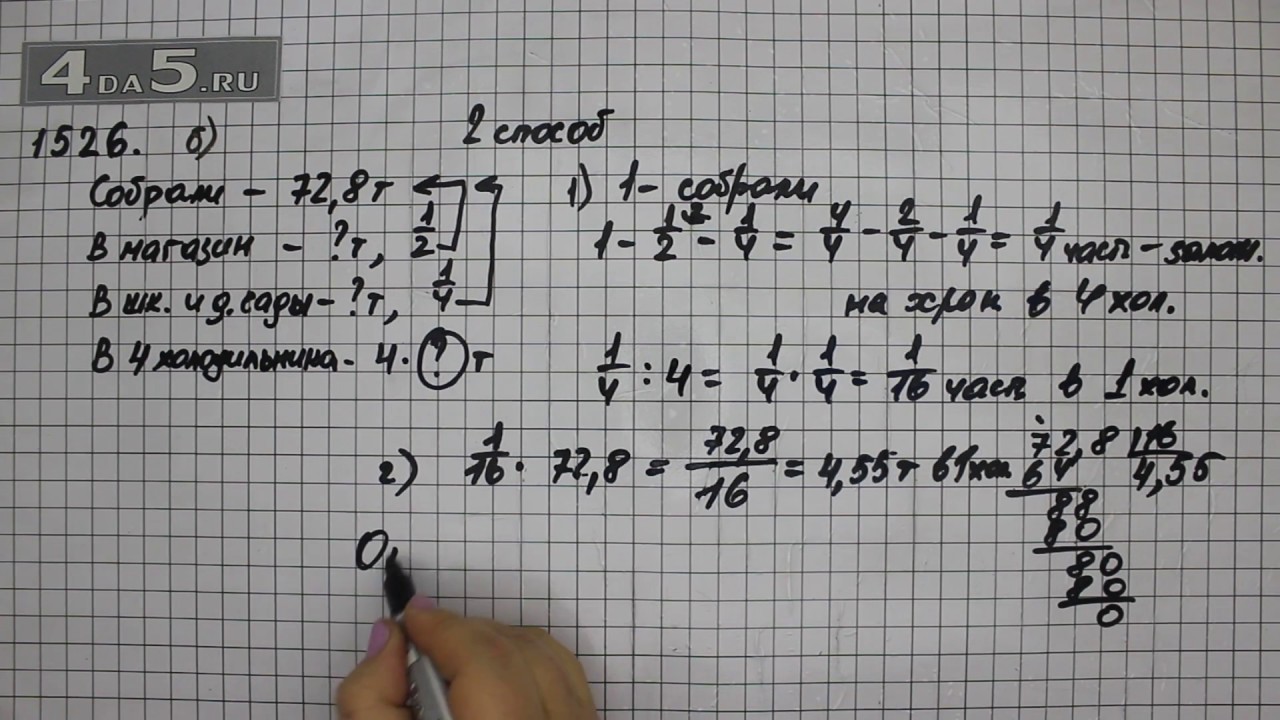 4DA5.RU
1526. б) 2 способ
Собрали - 72,8 т
В магазин - ? т, 1/2
В шк. и д. сады - ? т, 1/4
В 4 холодильника - 4 · ? т
1) 1 - собрали
1 - 1/2 - 1/4 = 4/4 - 2/4 - 1/4 = 1/4 часть -
на хран в 4 хол.
1/4 : 4 = 1/4 · 1/4 = 1/16 часть в 1 хол.
2) 1/16 · 72,8 = 72,8/16 = 4,55 т в 1 хол
72,8 16
64 4,55
88
80
80
80
0
О